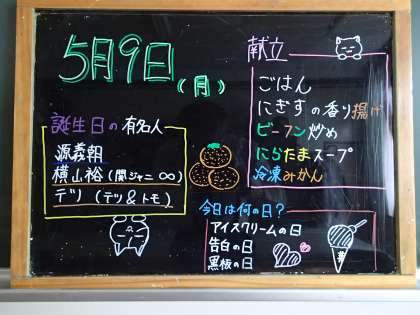 5月9日(月)
誕生日の有名人
源義朝
横山裕(関ジャニ∞)
デツ(テツ&トモ)
献立
ごはん
にぎすの香り揚げ
ビーフン炒め
にらたまスープ
冷凍みかん
今日は何の日?
アイスクリームの日
告白の日
黒板の日